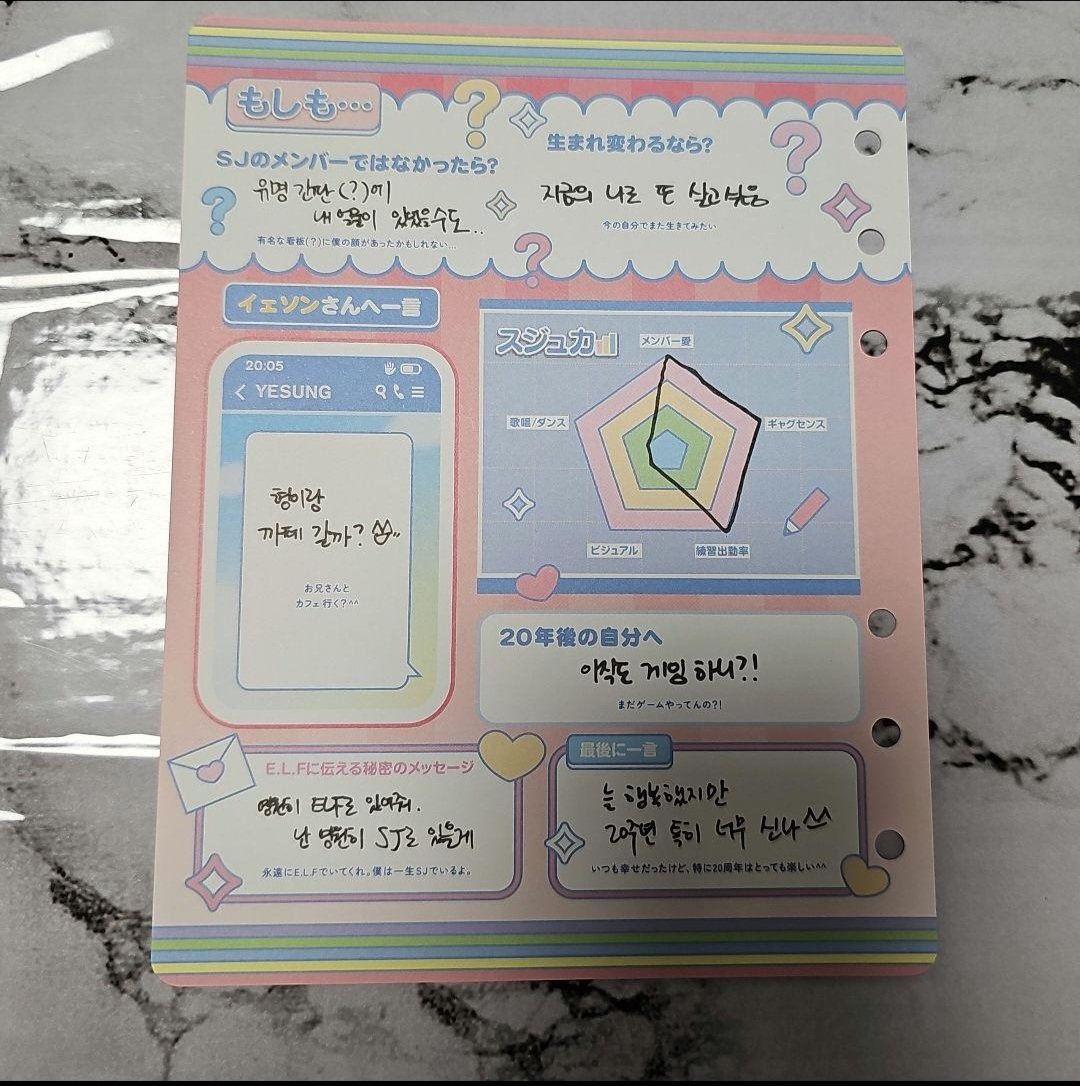 もしも…
SJのメンバーではなかったら?
유명 간판(?)에
내 얼굴이 있었을수도..
有名な看板(?)に僕の顔があったかもしれない…
生まれ変わるなら?
지금의 나로 또 살고싶음
今の自分でまた生きてみたい
イェソンさんへ一言
20:05
YESUNG
형이랑
까페 갈까? ^^
お兄さんと
カフェ行く?^^
スジュ力
メンバー愛
歌唱/ダンス
ギャグセンス
ビジュアル
練習出勤率
20年後の自分へ
아직도 게임 하니?!
まだゲームやってんの?!
E.L.Fに伝える秘密のメッセージ
영원히 ELF로 있어줘.
난 영원히 SJ로 있을게
永遠にE.L.Fでいてくれ。僕は一生SJでいるよ。
最後に一言
늘 행복했지만
20주년 특히 너무 신나^^
いつも幸せだったけど、特に20周年はとっても楽しい^^